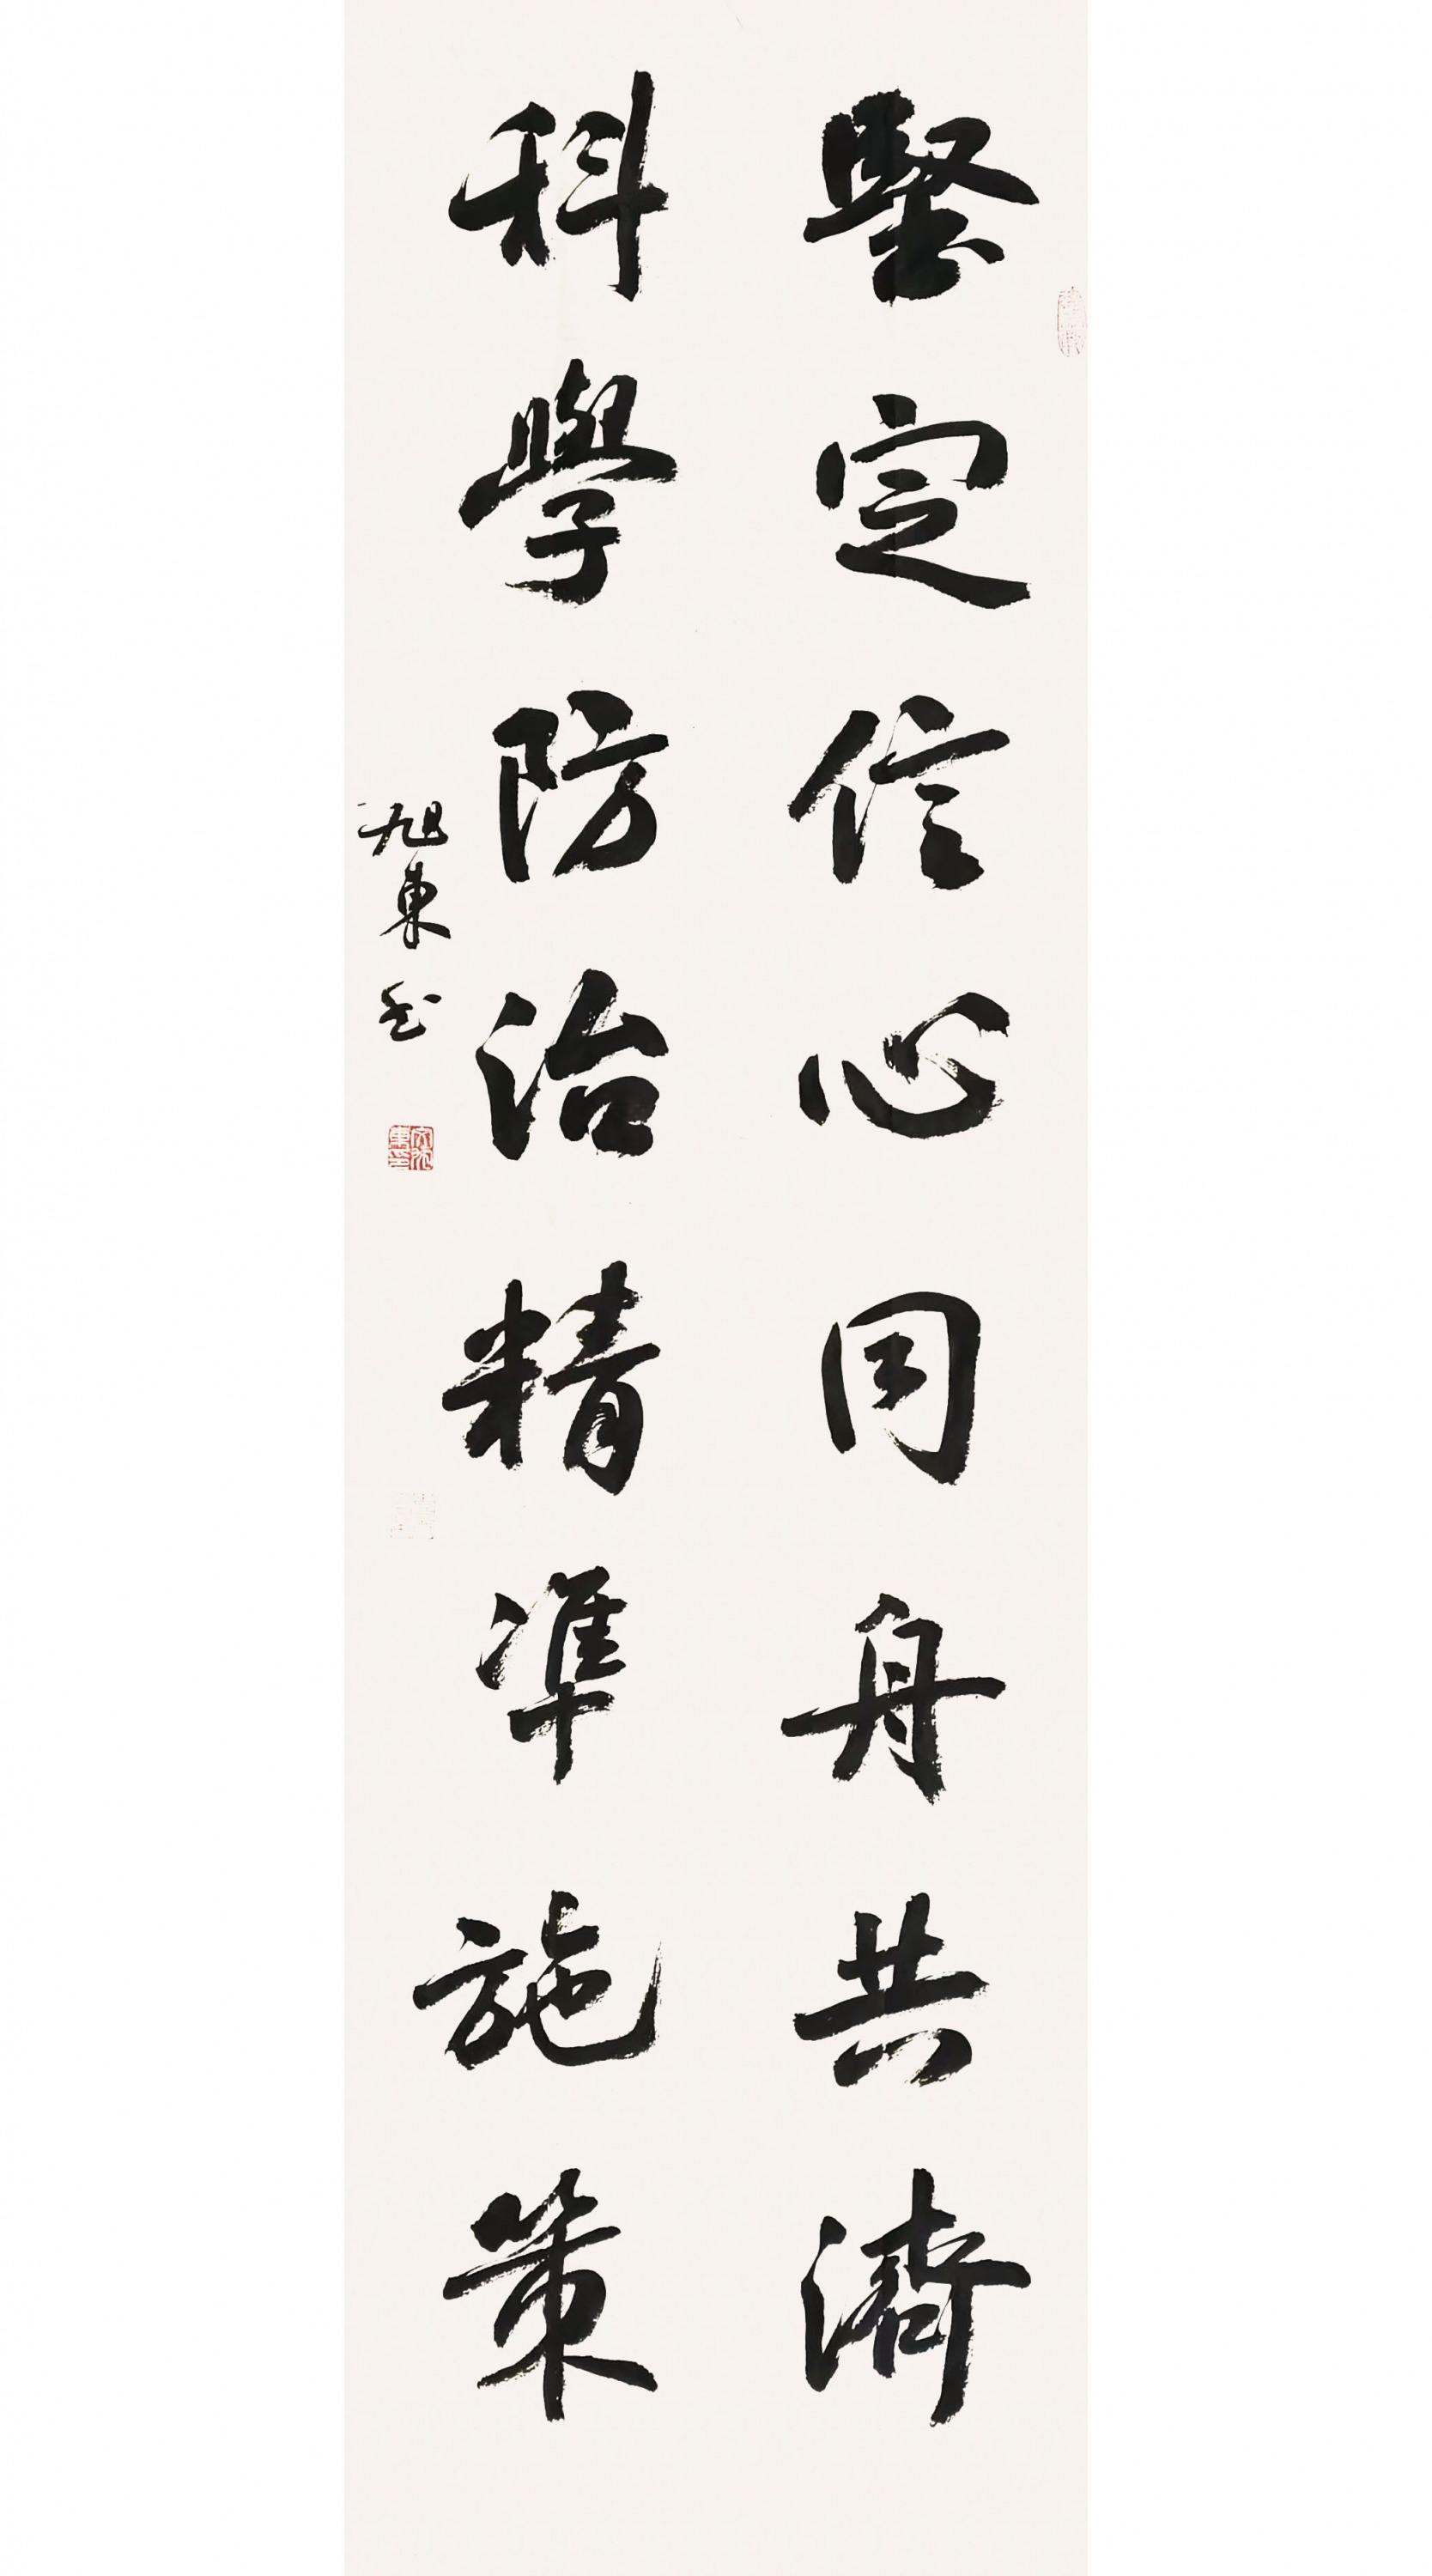 堅定信心同舟共濟
科學防治精準施策
旭東書